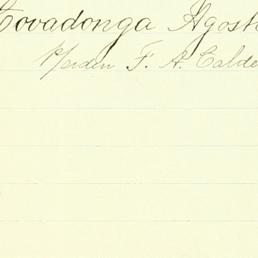 Covadonga Agost
F. A. Calde